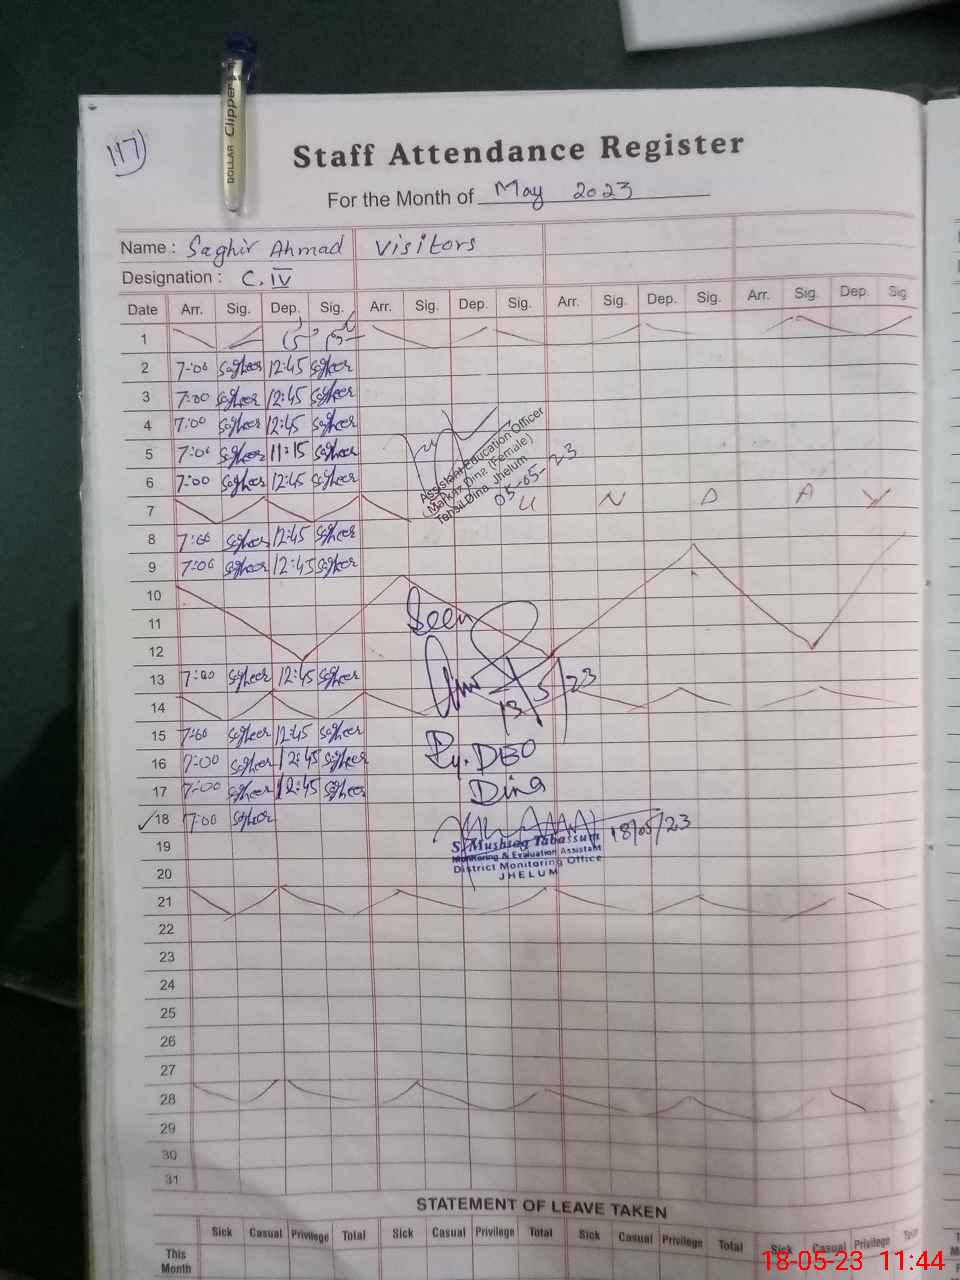 117)
DOLLAR Clipper
Staff Attendance Register
For the Month of May 2023
Name : Saghir Ahmad Visitors
Designation : C.IV
Date Arr. Sig. Dep. Sig. Arr. Sig. Dep. Sig. Arr. Sig. Dep. Sig. Arr. Sig. Dep. Sig
1
2 7:00 Sagheer 12:45 Sagheer
3 7:00 Sagheer 12:45 Sagheer
4 7:00 Sagheer 12:45 Sagheer
5 7:00 Sagheer 11:15 Sagheer
6 7:00 Sagheer 12:45 Sagheer
Assistant Education Officer
(Markaz Dina (Female)
Tehsil Dina, Jhelum
05-05-23
7 U N D A Y
8 7:00 Sagheer 12:45 Sagheer
9 7:00 Sagheer 12:45 Sagheer
10
11 Seen
12
13 7:00 Sagheer 12:45 Sagheer
13/5/23
14
15 7:00 Sagheer 12:45 Sagheer
Dy. DEO
16 7:00 Sagheer 12:45 Sagheer
Dina
17 7:00 Sagheer 12:45 Sagheer
18 7:00 Sagheer
18/05/23
S. Mushtaq Tabassum
Monitoring & Evaluation Assistant
District Monitoring Office
JHELUM
19
20
21
22
23
24
25
26
27
28
29
30
31
STATEMENT OF LEAVE TAKEN
Sick Casual Privilege Total Sick Casual Privilege Total Sick Casual Privilege Total Sick Casual Privilege
This Month
18-05-23 11:44